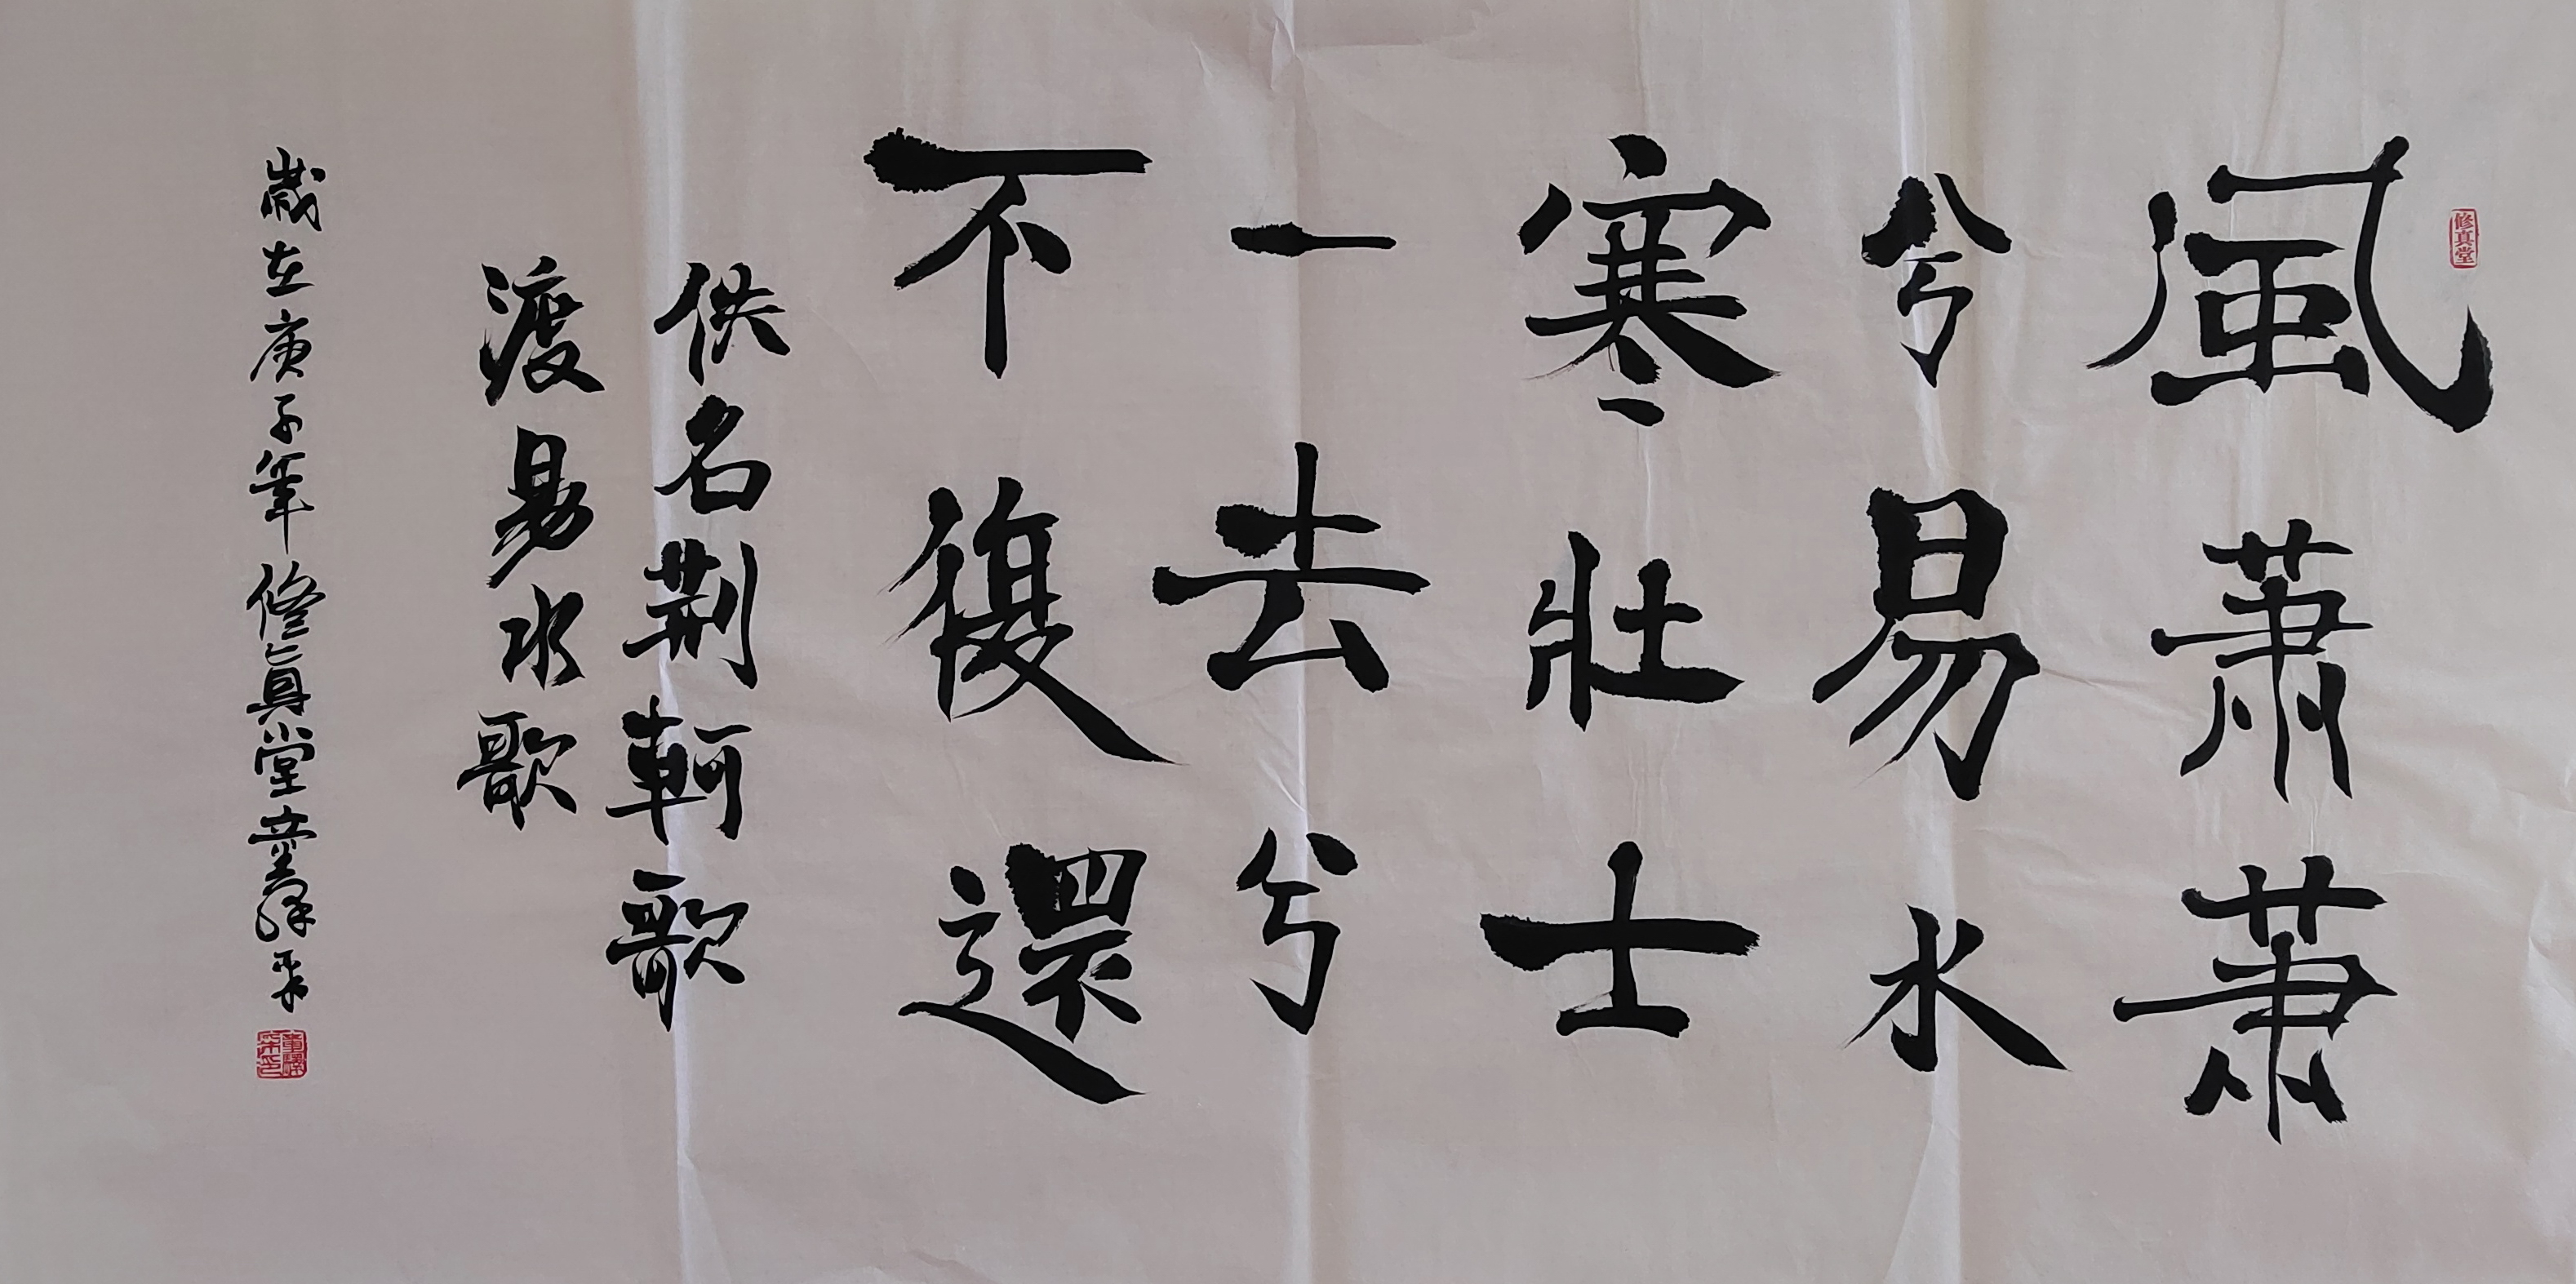 修真堂
風蕭蕭
兮易水
寒壯士
一去兮
不復還
佚名荆軻歌
渡易水歌
歲在庚子年修真堂童擇采